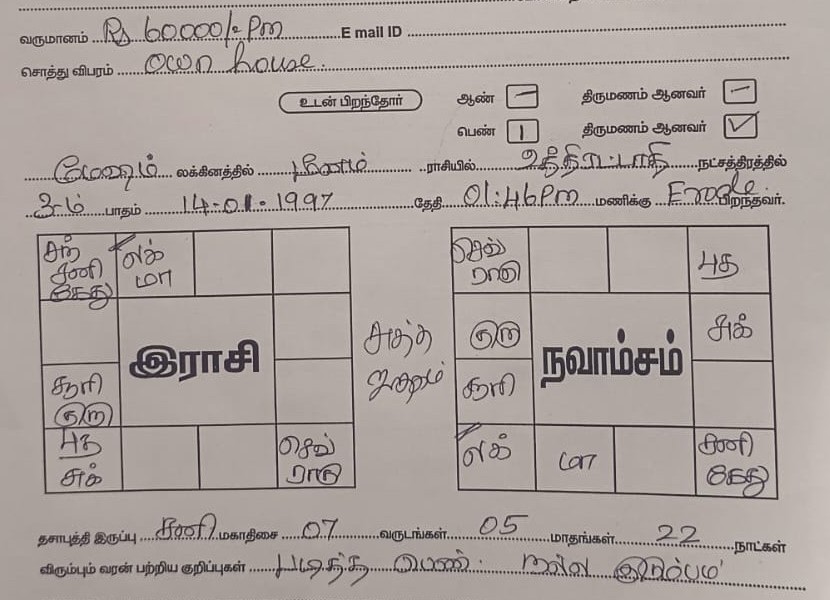 வருமானம் Rs 60000/- Pm E mail ID
சொத்து விபரம் own house.
உடன் பிறந்தோர் ஆண் – திருமணம் ஆனவர் –
பெண் 1 திருமணம் ஆனவர் ✓
மேஷம் லக்கினத்தில் மீனம் ராசியில் உத்திரட்டாதி நட்சத்திரத்தில்
3-ம் பாதம் 14-01-1997 தேதி 01:46 Pm மணிக்கு Erode பிறந்தவர்.
சந் சனி கேது
லக் மா
சூரி குரு
புத சுக்
செவ் ராகு
இராசி
சுத்த
செவ் ராகு
புத
குரு
சுக்
சூரி
லக்
மா
சனி கேது
நவாம்சம்
தசாபுத்தி இருப்பு சனி மகாதிசை 07 வருடங்கள் 05 மாதங்கள் 22 நாட்கள்
விரும்பும் வரன் பற்றிய குறிப்புகள் படித்த பெண். நல்ல குடும்பம்